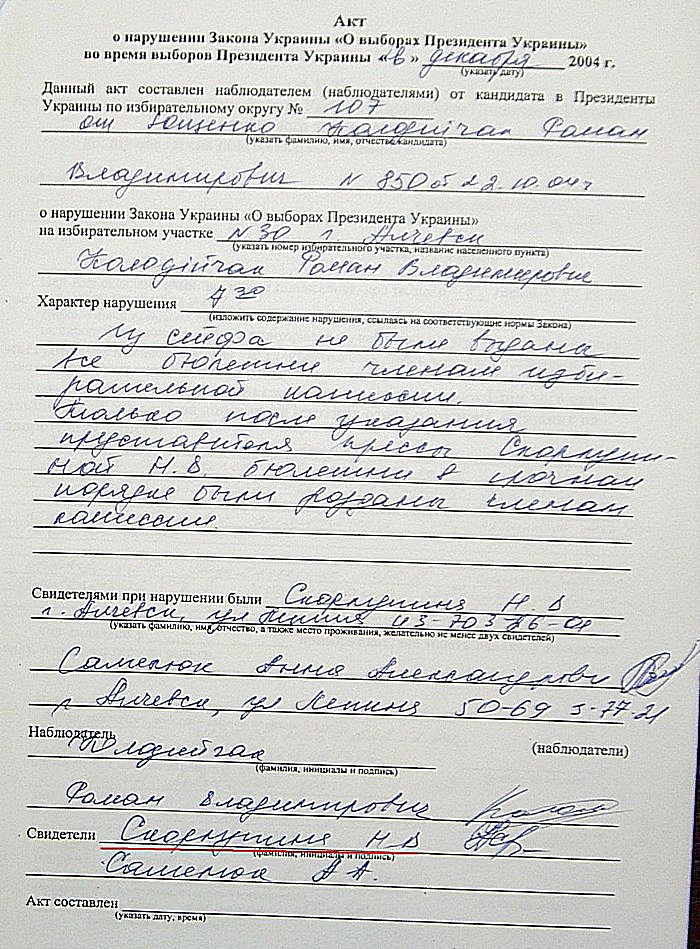 Акт
о нарушении Закона Украины «О выборах Президента Украины»
во время выборов Президента Украины « » декабря 2004 г.
(указать дату)
Данный акт составлен наблюдателем (наблюдателями) от кандидата в Президенты
Украины по избирательному округу № 107
от Ющенко Колодійчак Роман
(указать фамилию, имя, отчество кандидата)
Владимирович N 850 от 22.10.04г
о нарушении Закона Украины «О выборах Президента Украины»
на избирательном участке N 30 г. Алчевск
(указать номер избирательного участка, название населенного пункта)
Колодійчак Роман Владимирович
Характер нарушения 7 30
(изложить содержание нарушения, ссылаясь на соответствующие нормы Закона)
Из сейфа не были выданы
все бюлетени членам изби-
рательной комиссии.
Только после указания
представителя прессы Скорпуши-
ной Н.В бюлетени в срочном
порядке были розданы членам
комиссии.
Свидетелями при нарушении были Скорпушина Н. В
г. Алчевск, ул Ленина 43-70 3-26-04
(указать фамилию, имя, отчество, а также место проживания, желательно не менее двух свидетелей)
Самелюк Анна Александровн
г Алчевск, ул Ленина 50-69 5-77-21
Наблюдатель Колодийчак (наблюдатели)
(фамилия, инициалы и подпись)
Роман Владимирович
Свидетели Скорпушина Н В
(фамилия, инициалы и подпись)
Самелюк А А.
Акт составлен
(указать дату, время)